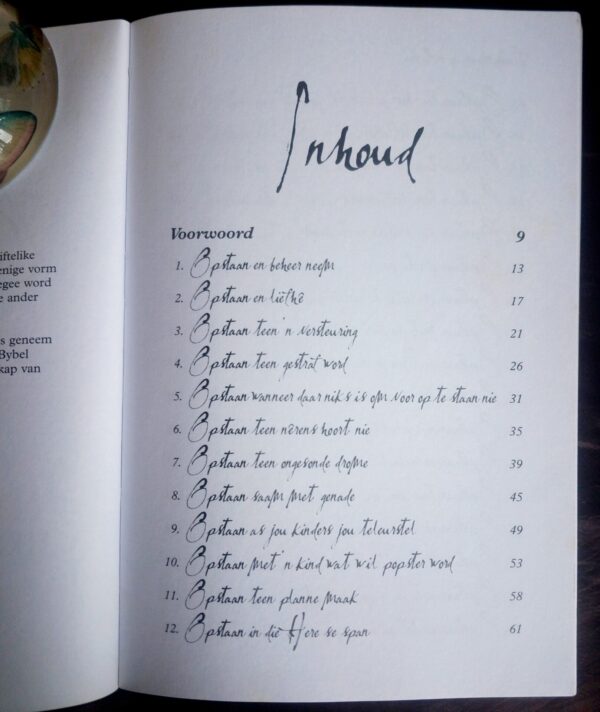 iftelike
enige vorm
egee word
e ander
s geneem
Bybel
kap van
Inhoud
Voorwoord 9
1. Opstaan en beheer neem 13
2. Opstaan en liefhê 17
3. Opstaan teen 'n versteuring 21
4. Opstaan teen gestraf word 26
5. Opstaan wanneer daar niks is om voor op te staan nie 31
6. Opstaan teen nêrens hoort nie 35
7. Opstaan teen ongesonde drome 39
8. Opstaan saam met genade 45
9. Opstaan as jou kinders jou teleurstel 49
10. Opstaan met 'n kind wat wil popster word 53
11. Opstaan teen planne maak 58
12. Opstaan in dié Here se span 61